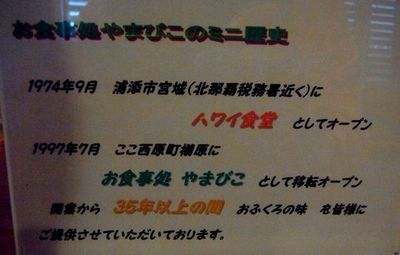 お食事処やまびこのミニ歴史
1974年9月　浦添市宮城(北那覇税務署近く)に
ハワイ食堂　としてオープン
1997年7月　ここ西原町棚原に
お食事処 やまびこ　として移転オープン
開業から　35年以上の間　おふくろの味　を皆様に
ご提供させていただいております。